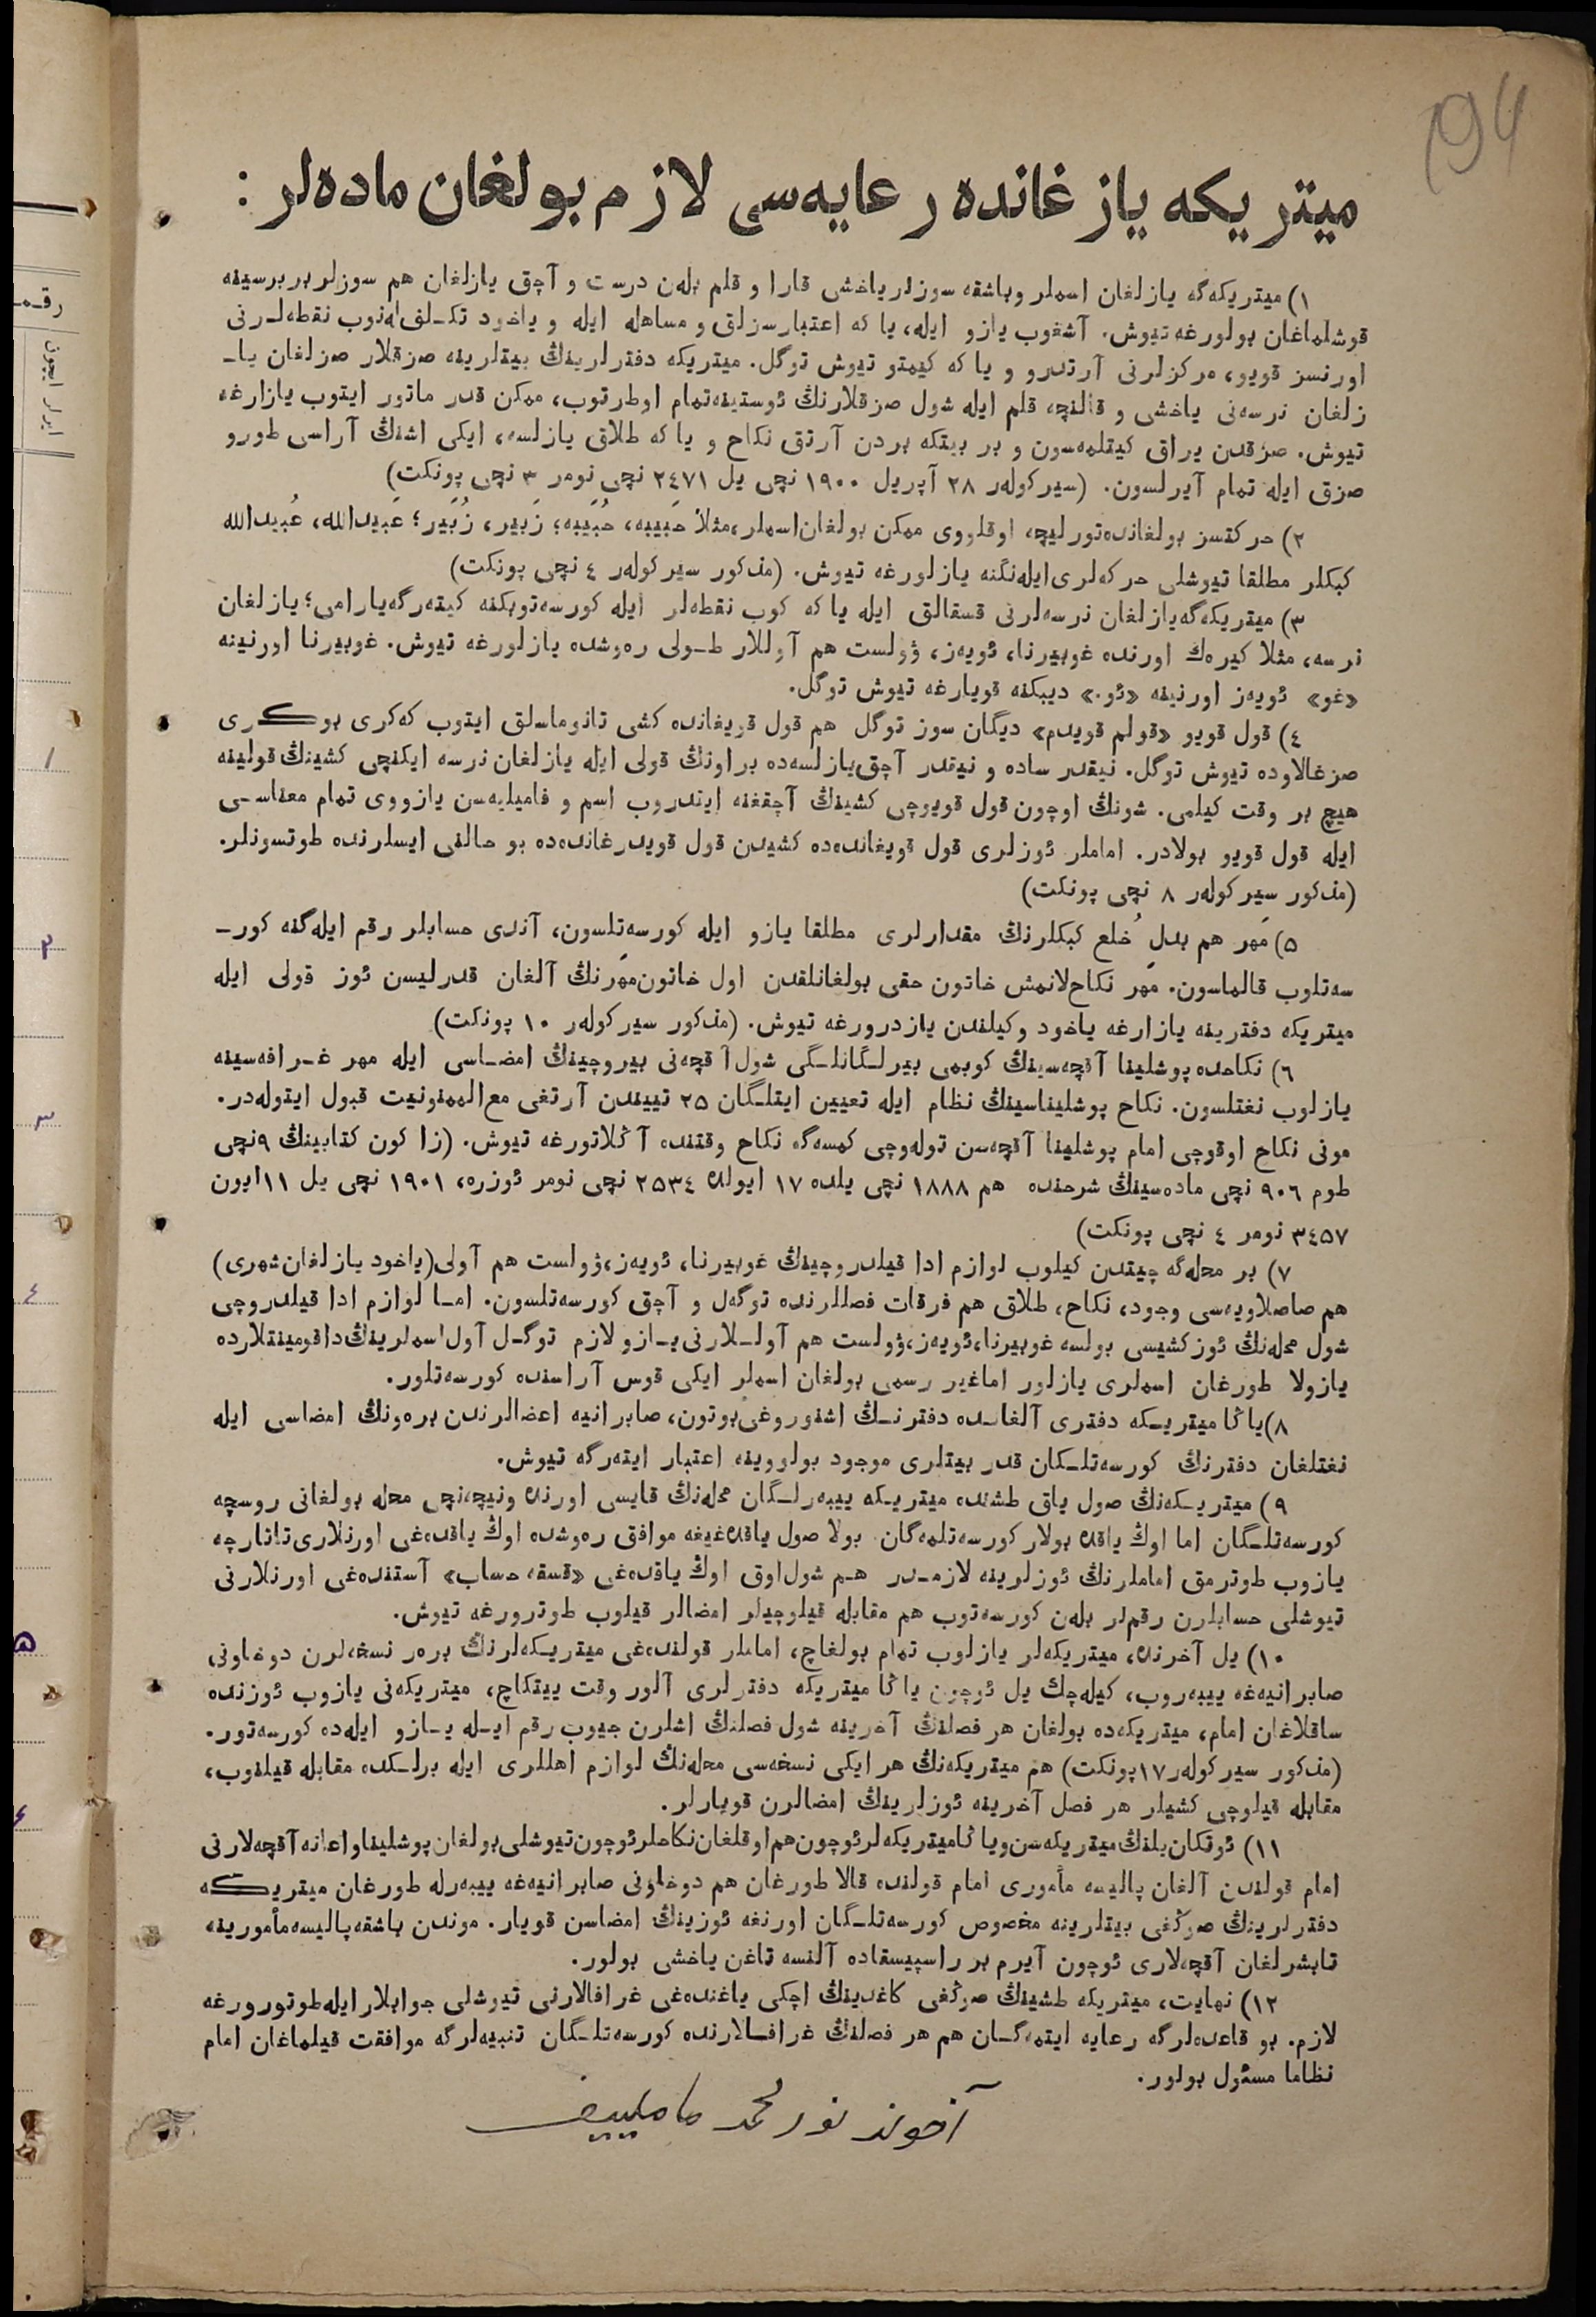 194
ميتريكه يازغانده رعايه‌سى لازم بولغان ماده‌لر :
١) ميتريكه‌گه يازلغان اسملر وباشقه سوزلرياخشى قارا و قلم بله‌ن درست و آچق يازلغان هم سوزلر بربرسينه
قوشلماغان بولورغه تيوش. آشغوب يازو ايله، يا كه اعتبارسزلق و مساهله ايله و ياخود تكـلف‌له‌نوب نقطه‌لـرنى
اورنسز قويو، مركزلرنى آرتدرو و يا كه كيمتو تيوش توگل. ميتريكه دفترلرينڭ بيتلرينه صزقلار صزلغان يا-
زلغان نرسه‌نى ياخشى و قالنچه قلم ايله شول صزقلارنڭ ئوستينه‌تمام اوطرتوب، ممكن قدر ماتور ايتوب يازارغه
تيوش. صزقدن يراق كيتلمه‌سون و بر بيتكه بردن آرتق نكاح و يا كه طلاق يازلسه، ايكى اشنڭ آراسى طورو
صزق ايله تمام آيرلسون. (سيركوله‌ر ٢٨ آپريل ١٩٠٠ نچى يل ٢٤٧١ نچى نومر ٣ نچى پونكت)
٢) حركتسز بولغانده‌تورليچه اوقلووى ممكن بولغان‌اسملر،مثلاً حَبيبه، حُبَيبه؛ زَبير، زُبَير؛ عَبيدالله، عُبيدالله
كبكلر مطلقا تيوشلى حركه‌لرى‌ايله‌نگنه يازلورغه تيوش. (مذكور سيركوله‌ر ٤ نچى پونكت)
٣) ميتريكه‌گه‌يازلغان نرسه‌لرنى قسقالق ايله يا كه كوب نقطه‌لر ايله كورسه‌توبكنه كيته‌رگه‌يارامى؛ يازلغان
نرسه، مثلا كيره‌ك اورنده غوبيرنا، ئويه‌ز، ۋولست هم آوللار طـولى ره‌وشده يازلورغه تيوش. غوبيرنا اورنينه
«غو» ئويه‌ز اورنينه «ئو.» ديبكنه قويارغه تيوش توگل.
٤) قول قويو «قولم قويدم» ديگان سوز توگل هم قول قويغانده كشى تانوماسلق ايتوب كه‌كرى بوكرى
صزغالاوده تيوش توگل. نيقدر ساده و نيقدر آچق‌يازلسه‌ده براونڭ قولى ايله يازلغان نرسه ايكنچى كشينڭ قولينه
هيچ بر وقت كيلمى. شونڭ اوچون قول قويوچى كشينڭ آچقغنه ايتدروب اسم و فاميليه‌سن يازووى تمام معناسـى
ايله قول قويو بولادر. اماملر ئوزلرى قول قويغانده‌ده كشيدن قول قويدرغانده‌ده بو حالنى ايسلرنده طوتسونلر.
(مذكور سيركوله‌ر ٨ نچى پونكت)
٥) مَهر هم بدلِ خُلع كبكلرنڭ مقدارلرى مطلقا يازو ايله كورسه‌تلسون، آندى حسابلر رقم ايله‌گنه كور-
سه‌تلوب قالماسون. مَهر نكاح‌لانمش خاتون حقى بولغانلقدن اول خاتون‌مَهرنڭ آلغان قدرليسن ئوز قولى ايله
ميتريكه دفترينه يازارغه ياخود وكيلندن يازدرورغه تيوش. (مذكور سيركوله‌ر ١٠ پونكت)
٦) نكاحده پوشلينا آقچه‌سينڭ كوبمى بيرلـگانلـگى شول‌آقچه‌نى بيروچينڭ امضـاسى ايله مهر غـرافه‌سينه
يازلوب نغتلسون. نكاح پوشليناسينڭ نظام ايله تعيين ايتلـگان ٢٥ تييندن آرتغى مع‌الممنونيت قبول ايتوله‌در.
مونى نكاح اوقوچى امام پوشلينا آقچه‌سن توله‌وچى كمسه‌گه نكاح وقتنده آڭلاتورغه تيوش. (زاكون كتابينڭ ٩نچى
طوم ٩٠٦ نچى ماده‌سينڭ شرحنده هم ١٨٨٨ نچى يلده ١٧ ايولده ٢٥٣٤ نچى نومر ئوزره، ١٩٠١ نچى يل ١١ايون
٣٤٥٧ نومر ٤ نچى پونكت)
٧) بر محله‌گه چيتدن كيلوب لوازم ادا قيلدروچينڭ غوبيرنا، ئويه‌ز،ۋولست هم آولى(ياخود يازلغان‌شهرى)
هم صاصلاويه‌سى وجود، نكاح، طلاق هم فرقات فصللرنده توگه‌ل و آچق كورسه‌تلسون. امـا لوازم ادا قيلدروچى
شول محله‌نڭ ئوز كشيسى بولسه غوبيرنا،ئويه‌ز،ۋولست هم آولـلارنى‌يـازو لازم توگـل آول‌اسملرينڭ‌داقومينتلارده
يازولا طورغان اسملرى يازلور اماغير رسمى بولغان اسملر ايكى قوس آراسنده كورسه‌تلور.
٨)ياڭا ميتريـكه دفترى آلغانـده دفترنـڭ اشنوروغى‌بوتون، صابرانيه اعضالرندن بره‌ونڭ امضاسى ايله
نغتلغان دفترنڭ كورسه‌تلـكان قدر بيتلرى موجود بولووينه اعتبار ايته‌رگه تيوش.
٩) ميتريـكه‌نڭ صول ياق طشنده ميتريـكه ييبه‌رلـگان محله‌نڭ قايسى اورنده ونيچه‌نچى محله بولغانى روسچه
كورسه‌تلـگان اما اوڭ ياقده بولار كورسه‌تلمه‌گان. بولا صول ياقده‌غيغه موافق ره‌وشده اوڭ ياقده‌غى اورنلارى‌تاتارچه
يازوب طوترمق اماملرنڭ ئوزلرينه لازمـدر هـم شول‌اوق اوڭ ياقده‌غى «قسقه حساب» آستنده‌غى اورنلارنى
تيوشلى حسابلرن رقملر بله‌ن كورسه‌توب هم مقابله قيلوچيلر امضالر قيلوب طوترورغه تيوش.
١٠) يل آخرنده، ميتريكه‌لر يازلوب تمام بولغاچ، اماملر قولنده‌غى ميتريـكه‌لرنڭ بره‌ر نسخه‌لرن دوخاونى
صابرانيه‌غه ييبه‌روب، كيله‌چك يل ئوچون ياڭا ميتريكه دفترلرى آلور وقت ييتكاچ، ميتريكه‌نى يازوب ئوزنده
ساقلاغان امام، ميتريكه‌ده بولغان هر فصلنڭ آخرينه شول فصلنڭ اشلرن جيوب رقم ايـله يـازو ايله‌ده كورسه‌تور.
(مذكور سيركوله‌ر١٧پونكت) هم ميتريكه‌نڭ هر ايكى نسخه‌سى محله‌نڭ لوازم اهللرى ايله برلـكده مقابله قيلنوب،
مقابله قيلوچى كشيلر هر فصل آخرينه ئوزلرينڭ امضالرن قويارلر.
١١) ئوتكان‌يلنڭ‌ميتريكه‌سن‌وياڭاميتريكه‌لرئوچون‌هم‌اوقلغان‌نكاحلرئوچون‌تيوشلى‌بولغان‌پوشليناواعانه‌آقچه‌لارنى
امام قولندن آلغان پاليسه مأمورى امام قولنده قالا طورغان هم دوخاونى صابرانيه‌غه ييبه‌رله طورغان ميتريكه
دفترلرينڭ صوڭغى بيتلرينه مخصوص كورسه‌تلـگان اورنغه ئوزينڭ امضاسن قويار. موندن باشقه‌پاليسه‌مأمورينه
تابشرلغان آقچه‌لارى ئوچون آيرم بر راسپيسقاده آلنسه تاغن ياخشى بولور.
١٢) نهايت، ميتريكه طشينڭ صوڭغى كاغدينڭ اچكى ياغنده‌غى غرافالارنى تيوشلى جوابلارايله‌طوتورورغه
لازم. بو قاعده‌لرگه رعايه ايتمه‌گـان هم هر فصلنڭ غرافـالارنده كورسه‌تلـگان تنبيه‌لرگه موافقت قيلماغان امام
نظاما مسئول بولور.
آخوند نورمحمد مامليیف
رقـمـ
١
٢
٣
٤
٥